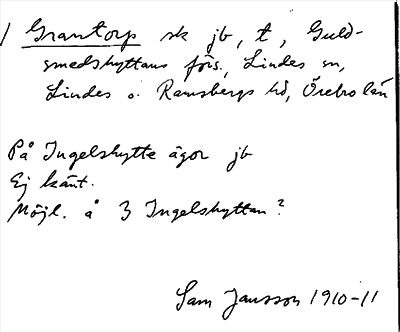 1 Grantorp sk jb, t, Guld-
smedshyttans förs., Lindes sn,
Lindes o. Ramsbergs hd, Örebro län
På Ingelshytte ägor jb
Ej känt.
Möjl. å 3 Ingelshyttan?
Sam Jansson 1910-11